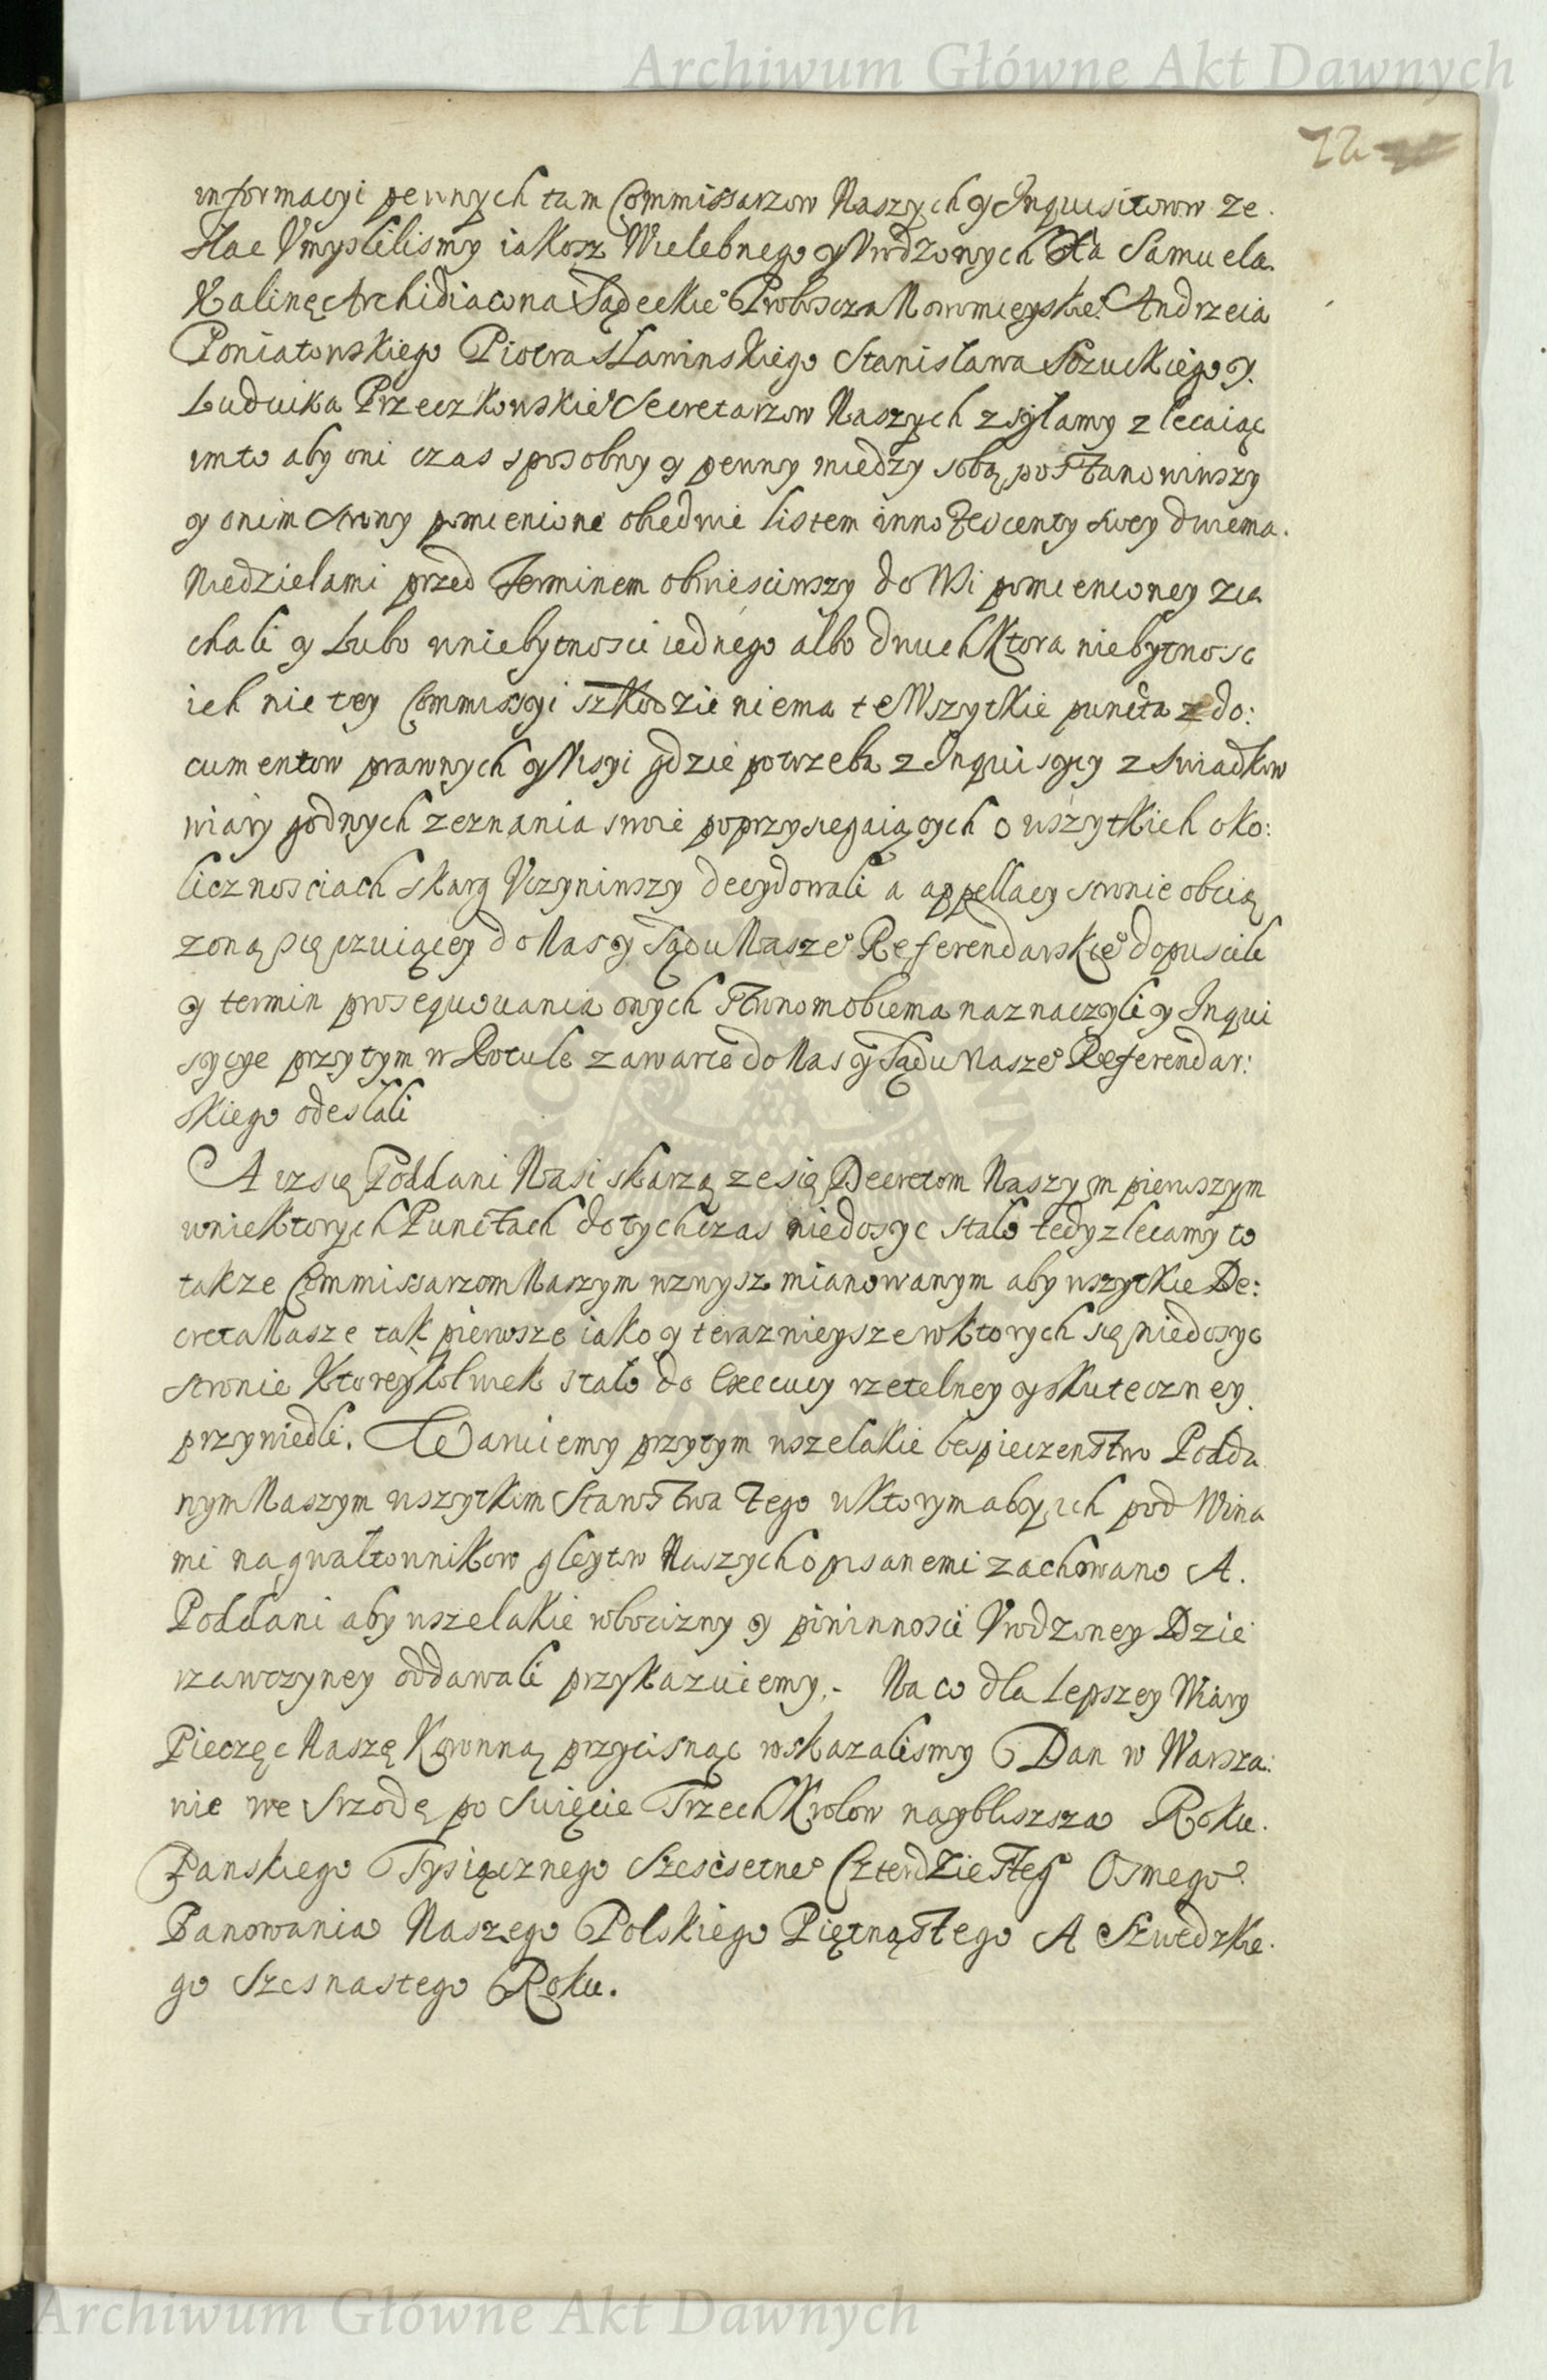 Archiwum Główne Akt Dawnych
72
informacyi pewnych tam Commissarzow Naszych y Inquisitorow ze
słac Vmyslilismy iakosz Wielebnego y Vrodzonych Xa Samuela
Kalinę Archidiacona Sądeckie° Proboscza Nowomieyskie° Andrzeia
Poniatowskiego Piotra Sławinskiego Stanisława Szuckiego y
Ludwika Przeczkowskie° Secretarzow Naszych zsyłamy zlecaiąc
im to aby oni czas sposobny y pewny miedzy sobą postanowiwszy
y onim strony pomienione obiedwie listem innotescenty swey dwiema
Niedzielami przed Terminem obwiesciwszy do Wsi pomienioney zia
chali y Lubo wniebytnosci iednego albo dwuch Ktora niebytnosc
ich nic tey Commissyi szkodzic niema te Wszytkie puncta z do:
cumentow prawnych y Wisyi gdzie potrzeba z Inquisycy z swiadkow
wiary godnych zeznania swoie poprzysiegaiących o wszytkich oko:
licznosciach skarg Vczyniwszy decydowali a appellacy stronie obcią
zoną się czuiącey do Nas y Sądu Nasze° Referendarskie° dopuscili
y termin prosequowania onych stronom obiema naznaczyli y Inqui
sycye przytym w Rotule zawarte do Nas y Sądu Nasze° Referendar:
skiego odesłali
A iz się Poddani Nasi skarzą ze się Decretom Naszym pierwszym
wniektorych Punctach dotychczas niedosyc stalo tedy zlecamy to
takze Commissarzom Naszym wzwysz mianowanym aby wszytkie De:
creta Nasze tak pierwsze iako y terazniejsze wktorych się niedosyc
stronie Ktoreykolwiek stało do Execucy rzetelney y skuteczney
przywiedli. Waruiemy przytym wszelakie bespieczenstwo Podda
nym Naszym wszytkim Starostwa Tego wktorym aby ich pod Wina
mi na gwałtownikow gleytow Naszych opisanemi zachowano A
Poddani aby wszelakie robocizny y powinnosci Vrodzoney Dzie
rzawczyney oddawali przykazuiemy.- Na co dla Lepszey Wiary
Pieczęc Naszę Koronną przycisnąc wskazalismy Dan w Warsza:
wie we Srzodę po Swięcie Trzech Krolow naybliszsza Roku
Panskiego Tysiącznego Szescsetne° Czterdziesteg° Osmego
Panowania Naszego Polskiego Piętnąstego A Szwedzkie
go Szesnastego Roku.
Archiwum Główne Akt Dawnych